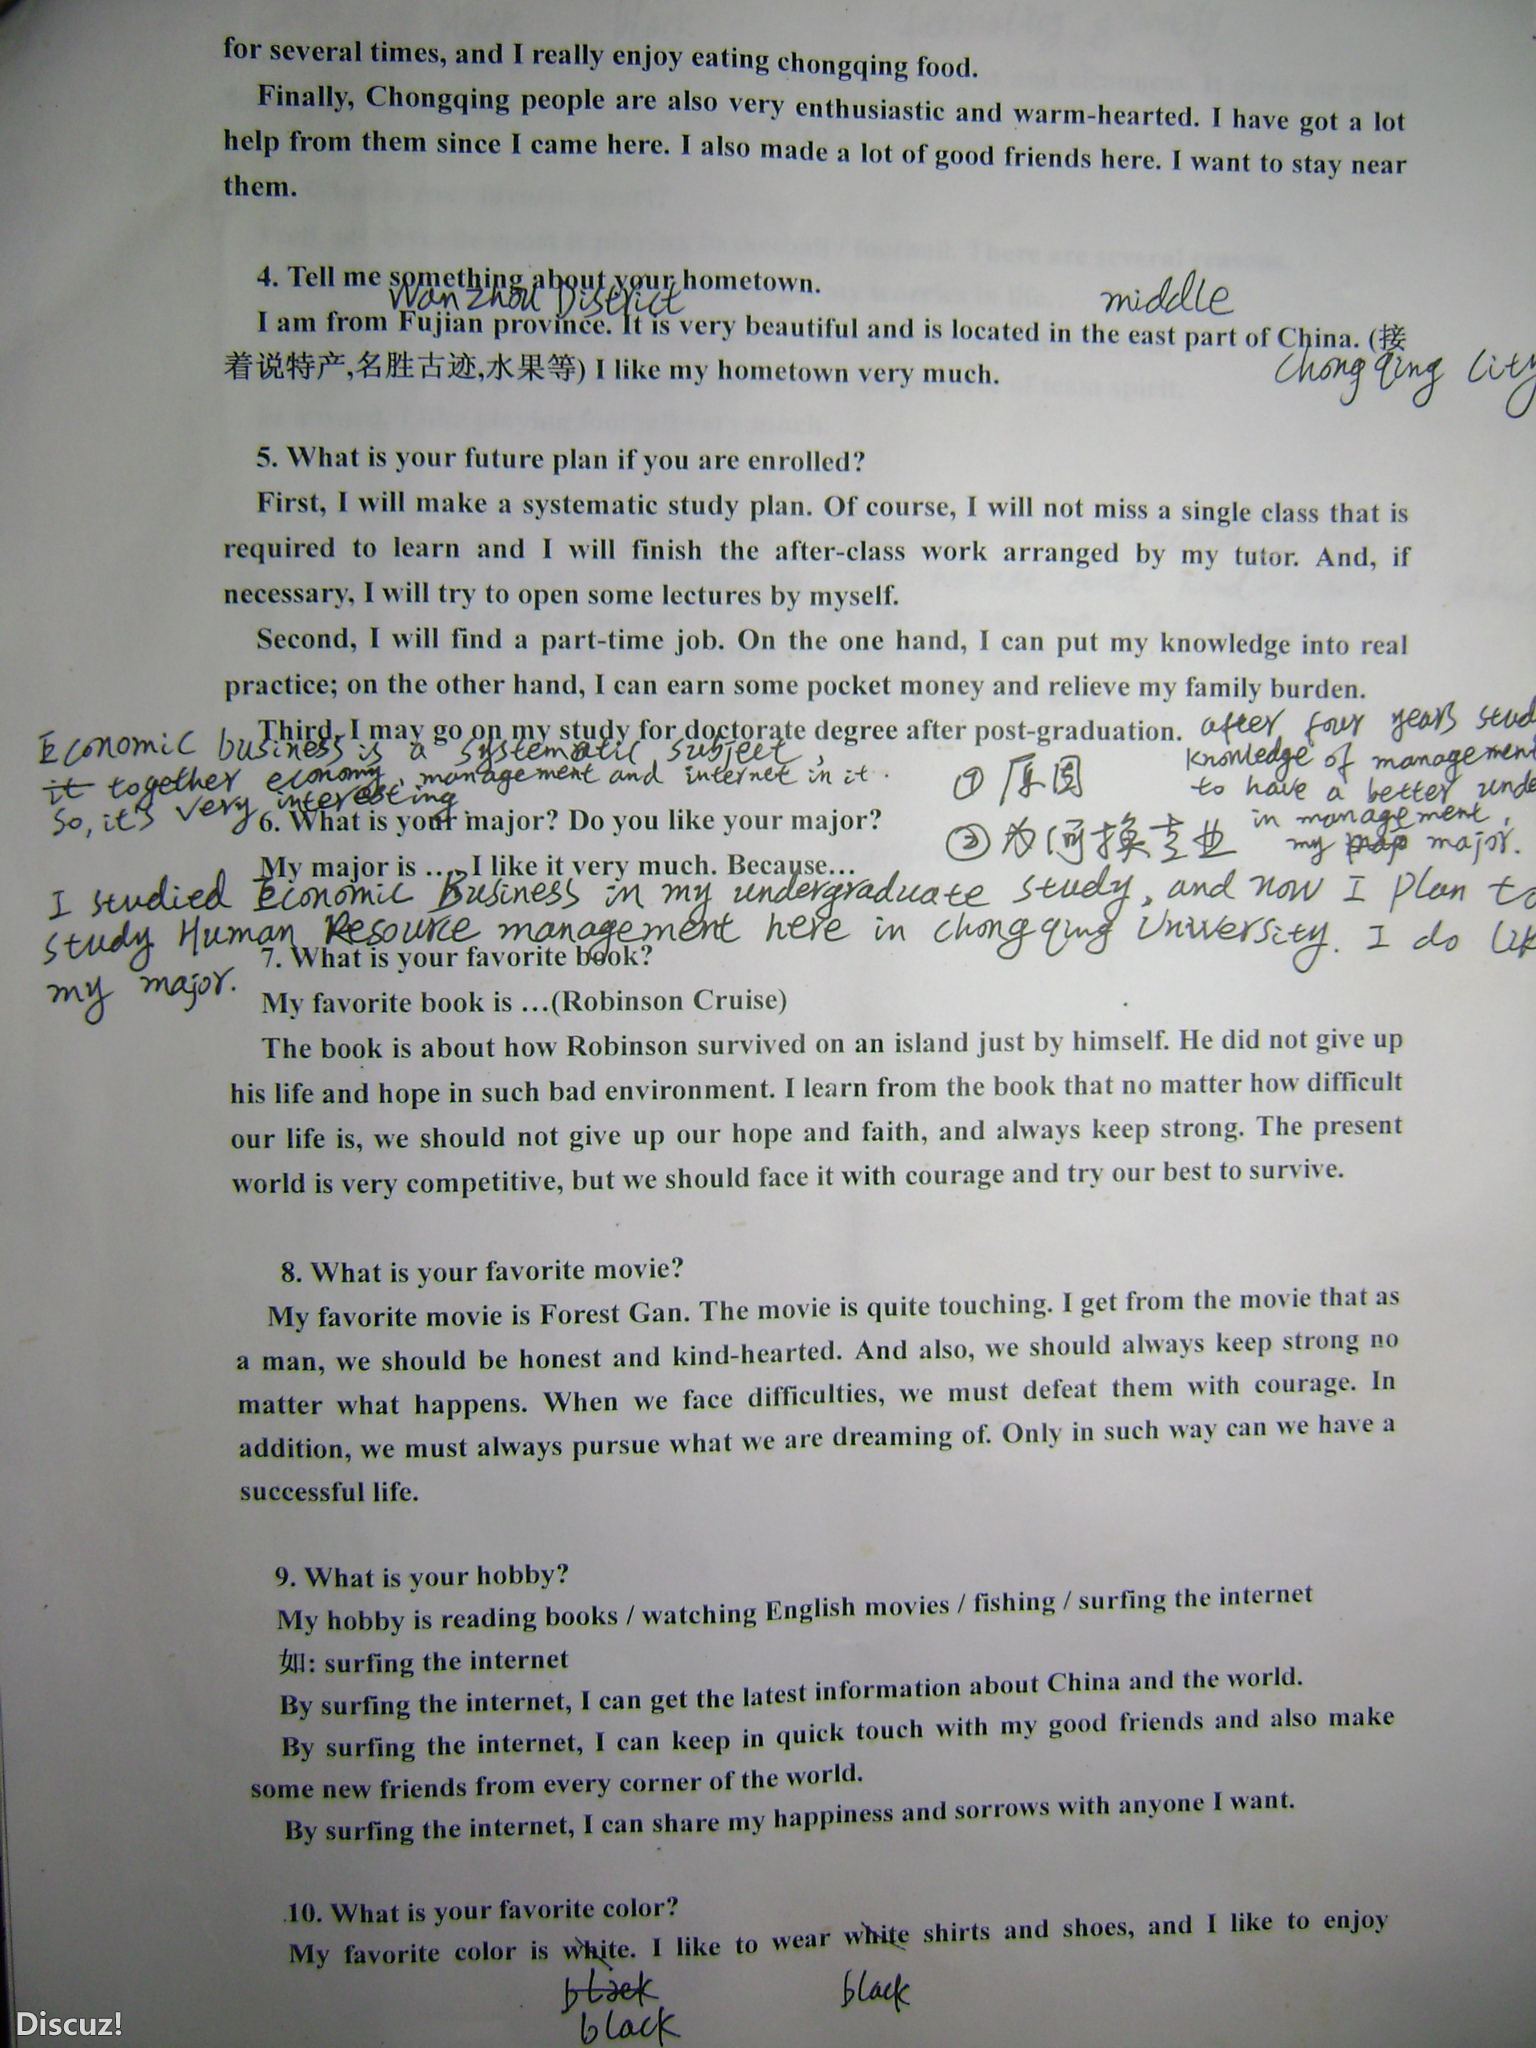 for several times, and I really enjoy eating chongqing food.
Finally, Chongqing people are also very enthusiastic and warm-hearted. I have got a lot
help from them since I came here. I also made a lot of good friends here. I want to stay near
them.
4. Tell me something about your hometown.
Wan zhou District
middle
I am from Fujian province. It is very beautiful and is located in the east part of China. (接
着说特产,名胜古迹,水果等) I like my hometown very much.
Chong qing City
5. What is your future plan if you are enrolled?
First, I will make a systematic study plan. Of course, I will not miss a single class that is
required to learn and I will finish the after-class work arranged by my tutor. And, if
necessary, I will try to open some lectures by myself.
Second, I will find a part-time job. On the one hand, I can put my knowledge into real
practice; on the other hand, I can earn some pocket money and relieve my family burden.
Third, I may go on my study for doctorate degree after post-graduation.
after four years stud
Knowledge of management
to have a better unde
in management,
my major.
Economic business is a systematic subject,
it together economy, management and internet in it.
So, it's very interesting
① 原因
② 为何换专业
6. What is your major? Do you like your major?
My major is .... I like it very much. Because...
I studied Economic Business in my undergraduate study, and now I plan to
study Human Resource management here in Chong qing University. I do lik
my major.
7. What is your favorite book?
My favorite book is …(Robinson Cruise)
The book is about how Robinson survived on an island just by himself. He did not give up
his life and hope in such bad environment. I learn from the book that no matter how difficult
our life is, we should not give up our hope and faith, and always keep strong. The present
world is very competitive, but we should face it with courage and try our best to survive.
8. What is your favorite movie?
My favorite movie is Forest Gan. The movie is quite touching. I get from the movie that as
a man, we should be honest and kind-hearted. And also, we should always keep strong no
matter what happens. When we face difficulties, we must defeat them with courage. In
addition, we must always pursue what we are dreaming of. Only in such way can we have a
successful life.
9. What is your hobby?
My hobby is reading books / watching English movies / fishing / surfing the internet
如: surfing the internet
By surfing the internet, I can get the latest information about China and the world.
By surfing the internet, I can keep in quick touch with my good friends and also make
some new friends from every corner of the world.
By surfing the internet, I can share my happiness and sorrows with anyone I want.
10. What is your favorite color?
My favorite color is white. I like to wear white shirts and shoes, and I like to enjoy
black
black
black
Discuz!